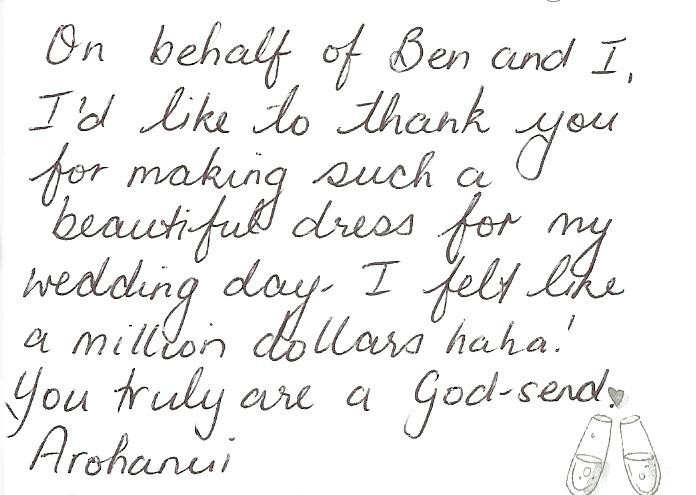 On behalf of Ben and I,
I'd like to thank you
for making such a
beautiful dress for my
wedding day. I felt like
a million dollars haha!
You truly are a God-send.
Arohanui